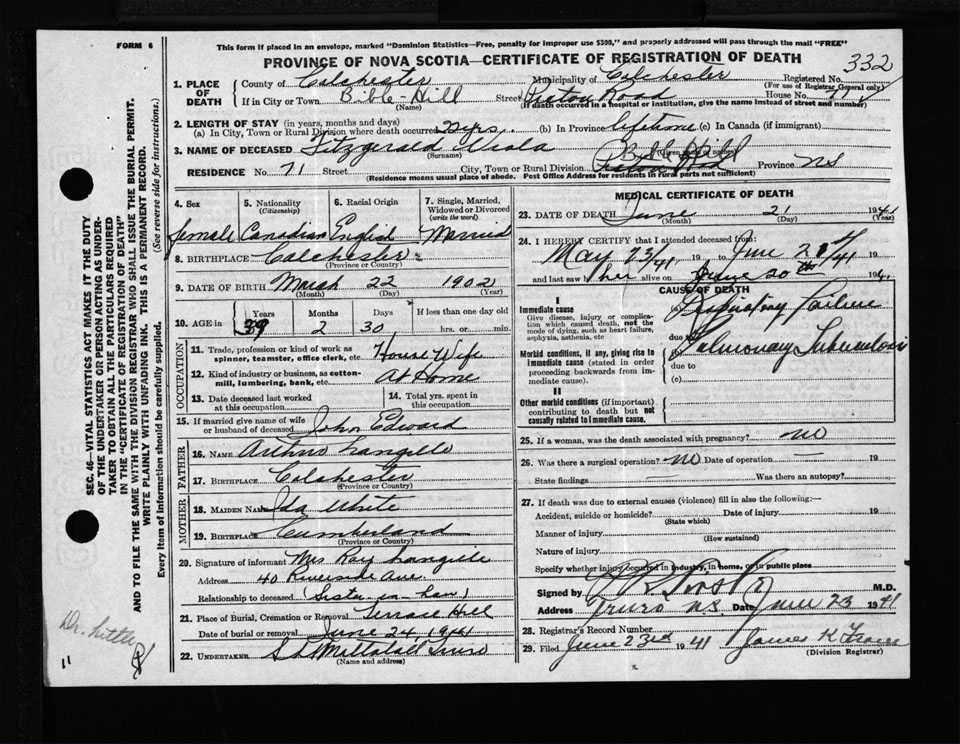 FORM 6
This form if placed in an envelope, marked "Dominion Statistics—Free, penalty for improper use $300," and properly addressed will pass through the mail "FREE"
PROVINCE OF NOVA SCOTIA—CERTIFICATE OF REGISTRATION OF DEATH
332
1. PLACE OF DEATH
County of Colchester Municipality of Colchester Registered No.
(For use of Registrar General only)
If in City or Town Bible Hill Street Road House No. 71
(Name) (If death occurred in a hospital or institution, give the name instead of street and number)
2. LENGTH OF STAY (in years, months and days)
(a) In City, Town or Rural Division where death occurred 2 yrs. (b) In Province lifetime (c) In Canada (if immigrant)
3. NAME OF DECEASED Fitzgerald Viola
(Surname) (Given name or names)
RESIDENCE No. 71 Street City, Town or Rural Division Bible Hill Road Province NS
(Residence means usual place of abode. Post Office Address for residents in rural parts not sufficient)
4. Sex
female
5. Nationality
(Citizenship)
Canadian
6. Racial Origin
English
7. Single, Married, Widowed or Divorced
(write the word)
Married
8. BIRTHPLACE Colchester
(Province or Country)
9. DATE OF BIRTH March 22 1902
(Month) (Day) (Year)
10. AGE in Years Months Days If less than one day old
39 2 30 hrs. or min.
OCCUPATION
11. Trade, profession or kind of work as spinner, teamster, office clerk, etc. House Wife
12. Kind of industry or business, as cotton-mill, lumbering, bank, etc. At Home
13. Date deceased last worked at this occupation
14. Total yrs. spent in this occupation
15. If married give name of wife or husband of deceased John Edward
FATHER
16. NAME Arthur Langille
17. BIRTHPLACE Colchester
(Province or Country)
MOTHER
18. MAIDEN NAME Ida White
19. BIRTHPLACE Cumberland
(Province or Country)
20. Signature of informant Mrs Ray Langille
Address 40 Riverside Ave.
Relationship to deceased (Sister-in-law)
21. Place of Burial, Cremation or Removal Terrace Hill
Date of burial or removal June 24 1941
22. UNDERTAKER Truro
(Name and address)
MEDICAL CERTIFICATE OF DEATH
23. DATE OF DEATH June 21 1941
(Month) (Day) (Year)
24. I HEREBY CERTIFY that I attended deceased from:
May 23/41 19 to June 21/41
and last saw her alive on June 20th 194
CAUSE OF DEATH
I
Immediate cause
Give disease, injury or complication which caused death, not the mode of dying, such as heart failure, asphyxia, asthenia, etc
(a) Respiratory Failure
due to
Morbid conditions, if any, giving rise to immediate cause (stated in order proceeding backwards from immediate cause).
(b) Pulmonary Tuberculosis
due to
(c)
II
Other morbid conditions (if important) contributing to death but not causally related to immediate cause.
25. If a woman, was the death associated with pregnancy? no
26. Was there a surgical operation? no Date of operation — 19
State findings Was there an autopsy?
27. If death was due to external causes (violence) fill in also the following:—
Accident, suicide or homicide? Date of injury 19
(State which)
Manner of injury
(How sustained)
Nature of injury
Specify whether injury occurred in industry, in home, or in public place
Signed by M.D.
Address Truro N.S. Date June 23 1941
28. Registrar's Record Number
29. Filed June 23rd 1941 James K
(Division Registrar)
SEC. 46—VITAL STATISTICS ACT MAKES IT THE DUTY
OF THE UNDERTAKER OR PERSON ACTING AS UNDER-
TAKER TO OBTAIN ALL THE PARTICULARS REQUIRED
IN THE "CERTIFICATE OF REGISTRATION OF DEATH"
AND TO FILE THE SAME WITH THE DIVISION REGISTRAR WHO SHALL ISSUE THE BURIAL PERMIT.
WRITE PLAINLY WITH UNFADING INK. THIS IS A PERMANENT RECORD.
Every item of information should be carefully supplied. (See reverse side for instructions.)
Dr.
11